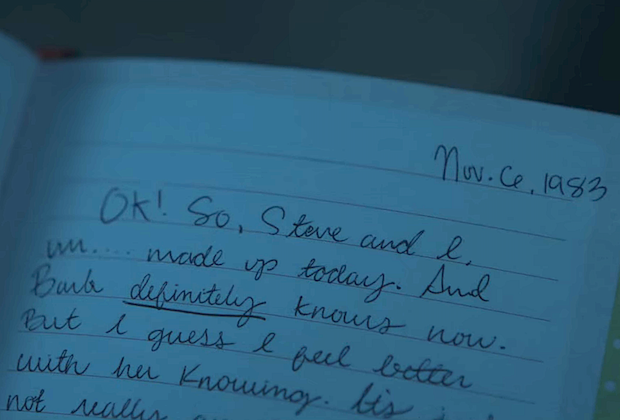 Nov. 6, 1983
OK! So, Steve and I,
um.... made up today. And
Barb definitely knows now.
But I guess I feel better
with her knowing. It's
not really